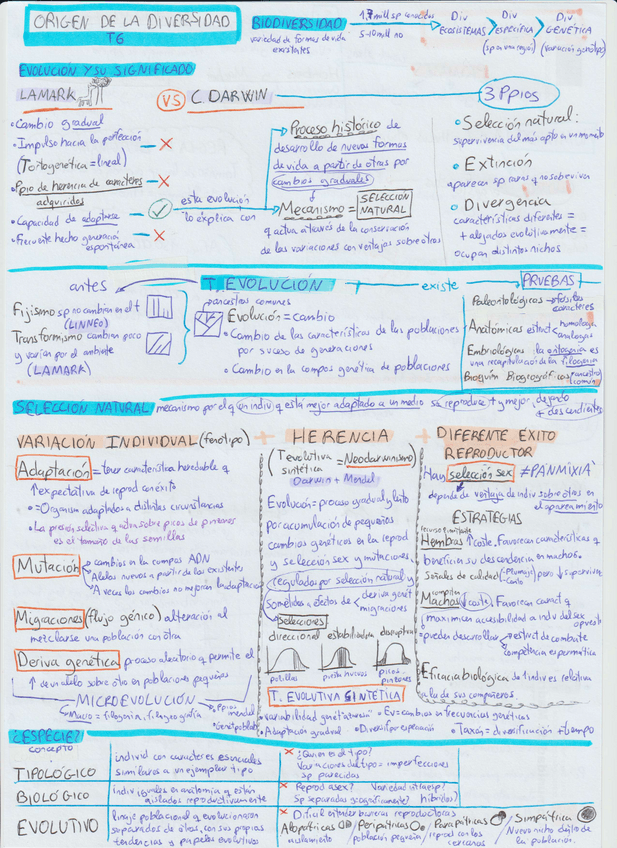 ORIGEN DE LA DIVERSIDAD
T6
BIODIVERSIDAD
variedad de formas de vida
existentes
1,7 mill sp conocidas
5-10 mill no
Div
ECOSISTEMAS
Div
ESPECÍFICA
(sp a una región)
Div
GENÉTICA
(variación genotipo)
EVOLUCIÓN Y SU SIGNIFICADO
LAMARK
VS
C. DARWIN
3 Ppios
• Cambio gradual
• Impulso hacia la perfección
(Tortogenética = lineal)
• Ppio de herencia de caracteres
adquiridos
• Capacidad de adaptarse
• Frecuente hecho generación
espontánea
esta evolución
lo explica con
Proceso histórico de
desarrollo de nuevas formas
de vida a partir de otras por
cambios graduales
Mecanismo = SELECCION
NATURAL
q actua a través de la conservación
de las variaciones con ventajas sobre otros
• Selección natural:
supervivencia del más apto en un momento
• Extinción
aparecen sp raras q no sobreviven
• Divergencia
características diferentes =
+ alejados evolutivamente =
ocupan distintos nichos
antes
T. EVOLUCIÓN
existe
PRUEBAS
Fijismo sp no cambian en el t
(LINNEO)
Transformismo cambian poco
y varían por el ambiente
(LAMARK)
ancestros comunes
Evolución = cambio
• Cambio de las características de las poblaciones
por suceso de generaciones
• Cambio en la compos genética de poblaciones
Paleontológicos → fósiles
caracteres
Anatómicas estruct homologa
analogas
Embriológicas la ontogenia es
una recapitulación de la filogenia
Bioquím Biogeográficos ancestro
común
SELECCIÓN NATURAL mecanismo por el q un indiv q está mejor adaptado a un medio se reproduce + y mejor dejando
+ descendientes
VARIACIÓN INDIVIDUAL (fenotipo) + HERENCIA + DIFERENTE EXITO
REPRODUCTOR
Adaptación = tener característica heredable q
↑ expectativa de reprod con éxito
• = Organismo adaptado a distintas circunstancias
• La presión selectiva q actua sobre picos de pinzones
es el tamaño de las semillas
Mutación
cambios en la compos ADN
Alelos nuevos a partir de los existentes
A veces los cambios no mejoran la adaptación
Migraciones (flujo génico) alteración al
mezclarse una población con otra
Deriva genética proceso aleatorio q permite el
↑ de un alelo sobre otro en poblaciones pequeñas
MICROEVOLUCIÓN
Macro = filogenia, filogeografía
Ppios
mendel
Genet poblac
(T evolutiva = Neodarwinismo)
sintética
Darwin + Mendel
Evolución = proceso gradual y lento
por acumulación de pequeños
cambios genéticos en la reprod
y selección sex y mutaciones,
regulados por selección natural y
sometidos a efectos de deriva genét
migraciones
Selecciones
direccional estabilizadora disruptiva
polillas
picos
pinzones
T. EVOLUTIVA SINTÉTICA
• Adaptación gradual
• Diversif or especiación
• Ev = cambios en frecuencias genéticas
• Taxón = diversificación + tiempo
Han selección sex ≠ PANMIXIA
depende de ventaja de indiv sobre otros en
el apareamiento
ESTRATEGIAS
recurso limitante
Hembras ↑ coste. Favorecen características q
benefician su descendencia en machos.
Señales de calidad (-Plumaje
-Canto) pero ↓ supervivencia
Machos ↓ coste. Favorecen caract q
maximicen accesibilidad a indiv del sexo
opuesto
• pueden desarrollar estruct de combate
competencia espermática
Eficacia biológica de 1 indiv es relativa
a la de sus compañeros.
¿ESPECIE?
concepto
TIPOLÓGICO
individ con caracteres esenciales
similares a un ejemplar tipo
× ¿Quien es el tipo?
Variaciones del tipo = imperfecciones
sp parecidas
BIOLÓGICO
individ iguales en anatomía q están
aislados reproductivamente
× Reprod asex? Variedad intraesp?
Sp separadas geograficamente? híbridos?
EVOLUTIVO
linaje poblacional q evoluciona
separado de otros, con sus propias
tendencias y papeles evolutivos
× Dificil entender barreras reproductoras
Alopátricas
aislamiento
Peripátricas
población pequeña
Parapátricas
reprod con los
cercanos
Simpátrica
Nuevo nicho dentro de
la población.